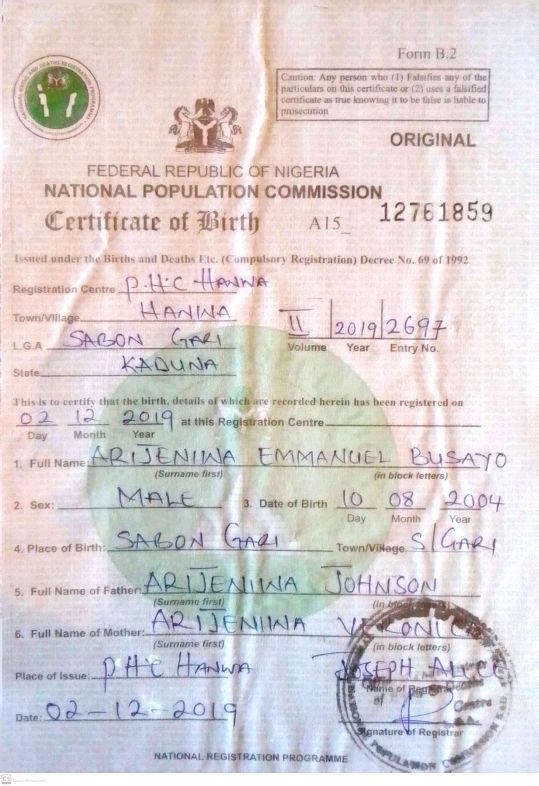 Form B.2
Caution: Any person who (1) Falsifies any of the
particulars on this certificate or (2) uses a falsified
certificate as true knowing it to be false is liable to
prosecution
ORIGINAL
FEDERAL REPUBLIC OF NIGERIA
NATIONAL POPULATION COMMISSION
Certificate of Birth A15_ 12761859
Issued under the Births and Deaths Etc. (Compulsory Registration) Decree No. 69 of 1992
Registration Centre P.H.C HANWA
Town/Village HANWA
II 2019 2697
L.G.A SABON GARI
Volume Year Entry No.
State KADUNA
This is to certify that the birth, details of which are recorded herein has been registered on
02 12 2019 at this Registration Centre
Day Month Year
1. Full Name ARIJENIINA EMMANUEL BUSAYO
(Surname first) (in block letters)
2. Sex: MALE 3. Date of Birth 10 08 2004
Day Month Year
4. Place of Birth: SABON GARI Town/Village S/GARI
5. Full Name of Father: ARIJENIINA JOHNSON
(Surname first) (in block letters)
6. Full Name of Mother: ARIJENIINA
(Surname first) (in block letters)
Place of Issue: P.H.C HANWA JOSEPH ALICE
Name of Registrar
Date: 02-12-2019
Signature of Registrar
NATIONAL REGISTRATION PROGRAMME